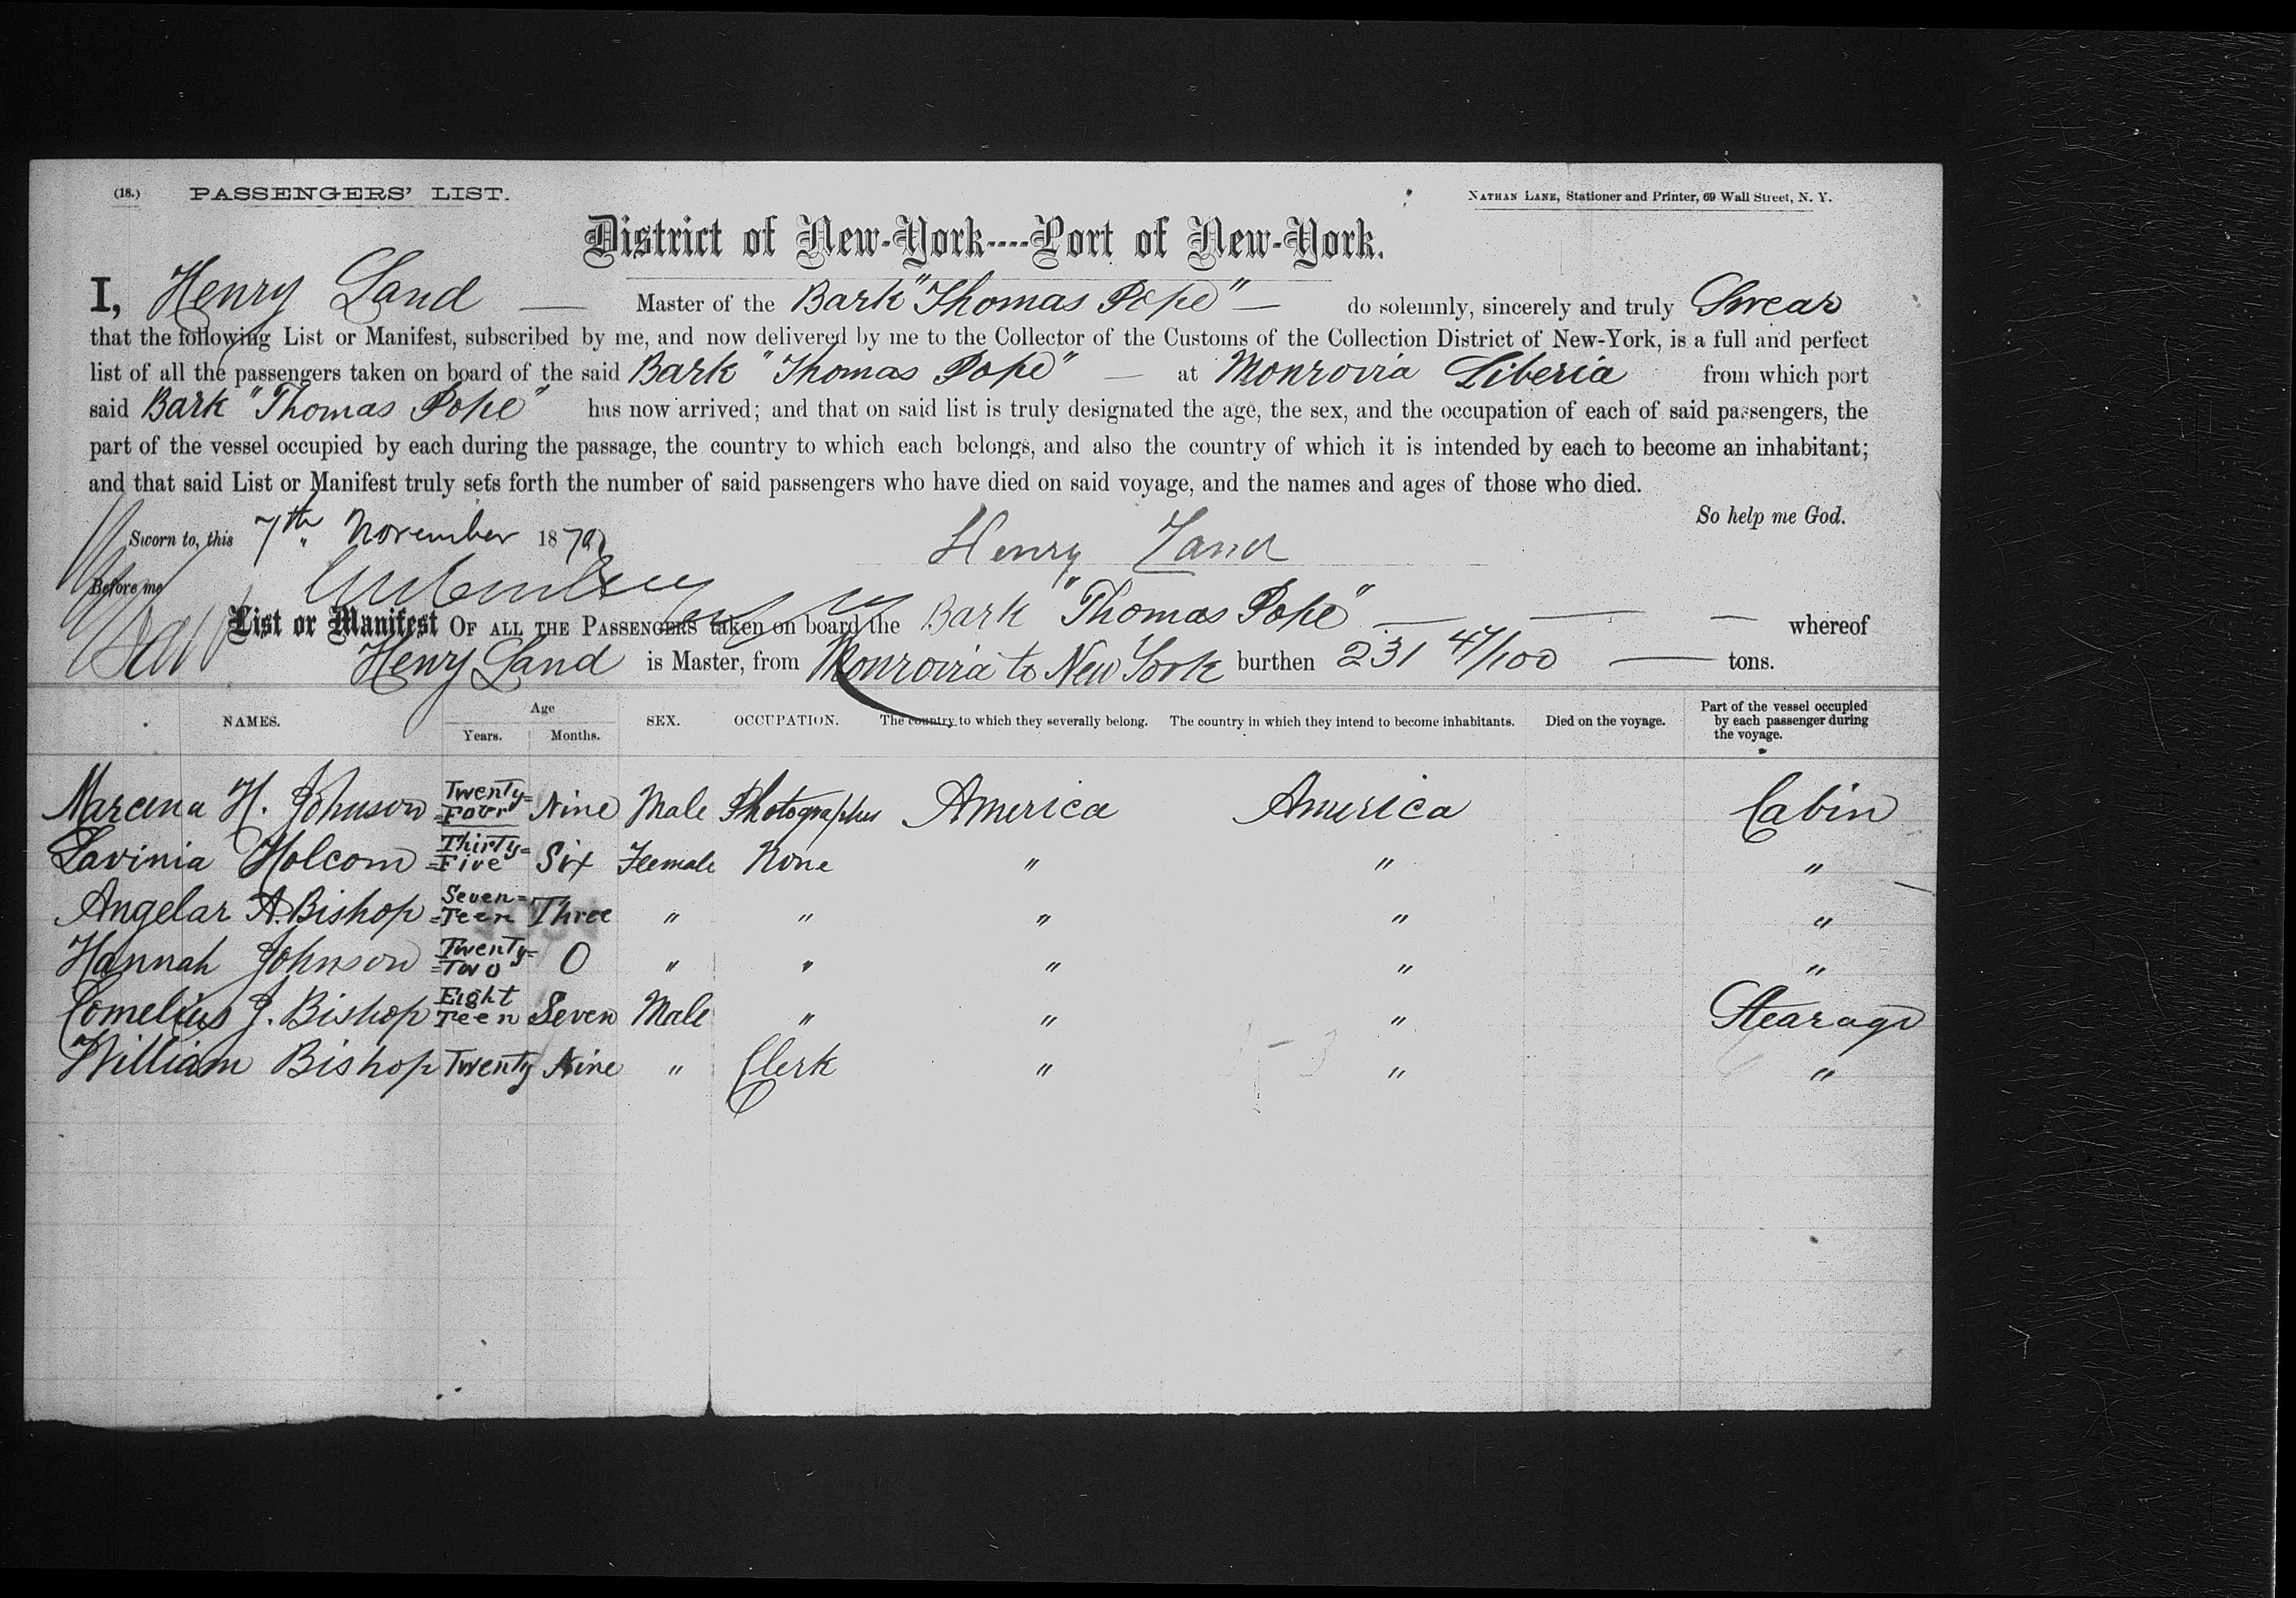 (18.) PASSENGERS' LIST. NATHAN LANE, Stationer and Printer, 69 Wall Street, N. Y.
District of New-York----Port of New-York.
I, Henry Land — Master of the Bark "Thomas Pope" — do solemnly, sincerely and truly Swear
that the following List or Manifest, subscribed by me, and now delivered by me to the Collector of the Customs of the Collection District of New-York, is a full and perfect
list of all the passengers taken on board of the said Bark "Thomas Pope" — at Monrovia Liberia from which port
said Bark "Thomas Pope" has now arrived; and that on said list is truly designated the age, the sex, and the occupation of each of said passengers, the
part of the vessel occupied by each during the passage, the country to which each belongs, and also the country of which it is intended by each to become an inhabitant;
and that said List or Manifest truly sets forth the number of said passengers who have died on said voyage, and the names and ages of those who died.
So help me God.
Sworn to, this 7th November 1879
Henry Land
Before me
List or Manifest OF ALL THE PASSENGERS taken on board the Bark "Thomas Pope" — — — whereof
Henry Land is Master, from Monrovia to New York burthen 231 47/100 — tons.
NAMES. Age Years. Months. SEX. OCCUPATION. The country to which they severally belong. The country in which they intend to become inhabitants. Died on the voyage. Part of the vessel occupied by each passenger during the voyage.
Marcena H. Johnson Twenty=Four Nine Male Photographer America America Cabin
Lavinia Holcom Thirty=Five Six Feemale None " " "
Angelar A. Bishop Seven=Teen Three " " " " "
Hannah Johnson Twenty=Two 0 " " " " "
Cornelius J. Bishop Eight Teen Seven Male " " " Stearage
William Bishop Twenty Nine " Clerk " " "